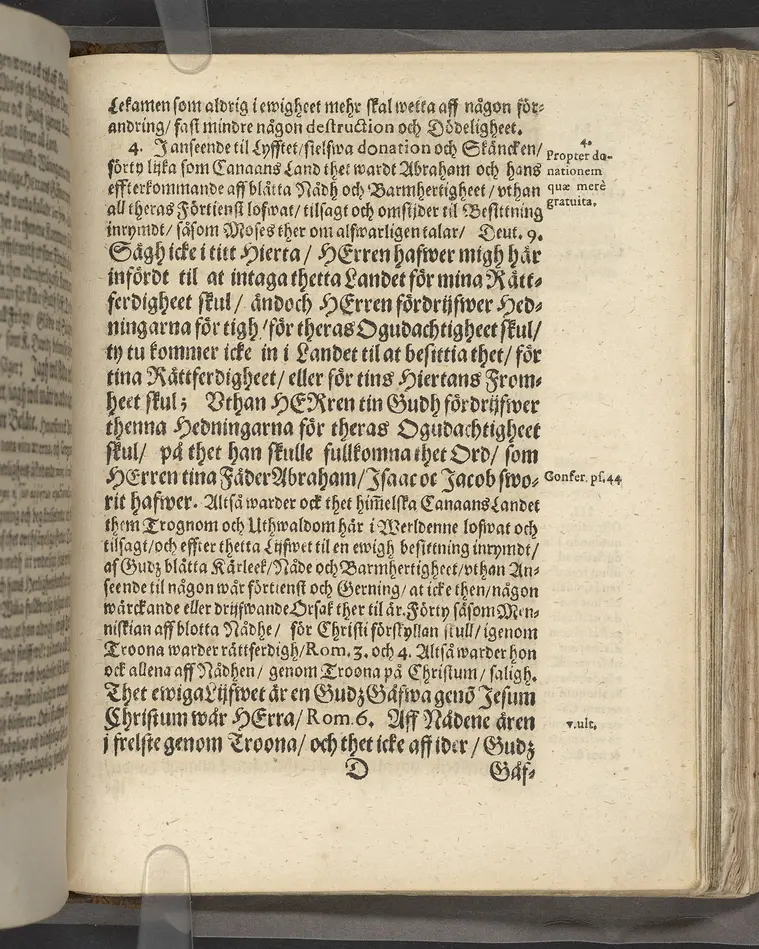 Lekamen som aldrig i ewigheet mehr skal wetta aff någon för-
andring/ fast mindre någon destruction och Dödeligheet.
4. J anseende til Lyfftet/sielfwa donation och Skäncken/
förty lijka som Canaans Land thet wardt Abraham och hans
effterkommande aff blåtta Nådh och Barmhertigheet/vthan
all theras Förtienst lofwat/tilsagt och omsijder til Besittning
inrymdt/ såsom Moses ther om alfwarligen talar/ Deut. 9.
Sägh icke i titt Hierta/ HErren hafwer migh här
infördt til at intaga thetta Landet för mina Rätt-
ferdigheet skul/ ändoch HErren fördrijfwer Hed-
ningarna för tigh/för theras Ogudachtigheet skul/
ty tu kommer icke in i Landet til at besittia thet/ för
tina Rättferdigheet/ eller för tins Hiertans From-
heet skul; Vthan HERren tin Gudh fördrijfwer
thenna Hedningarna för theras Ogudachtigheet
skul/ på thet han skulle fullkomna thet Ord/ som
HErren tina Fäder Abraham/Jsaac oc Jacob swo-
rit hafwer. Altså warder ock thet him̃elska Canaans Landet
them Trognom och Uthwaldom här i Werldenne lofwat och
tilsagt/och effter thetta Lijfwet til en ewigh besittning inrymdt/
af Gudz blåtta Kärleek/Nåde och Barmhertigheet/vthan An-
seende til någon wår förtienst och Gerning/at icke then/någon
wärckande eller drijfwande Orsak ther til är. Förty såsom Men-
niskian aff blotta Nådhe/ för Christi förskyllan skull/ igenom
Troona warder rättferdigh/Rom. 3. och 4. Altså warder hon
ock allena aff Nådhen/ genom Troona på Christum/ saligh.
Thet ewiga Lijfwet är en Gudz Gåfwa genō Jesum
Christum wår HErra/ Rom. 6. Aff Nådene ären
j frelste genom Troona/ och thet icke aff ider/ Gudz
D Gåf-
4.
Propter do-
nationem
quæ merè
gratuita.
Confer. ps. 44
v. ult.